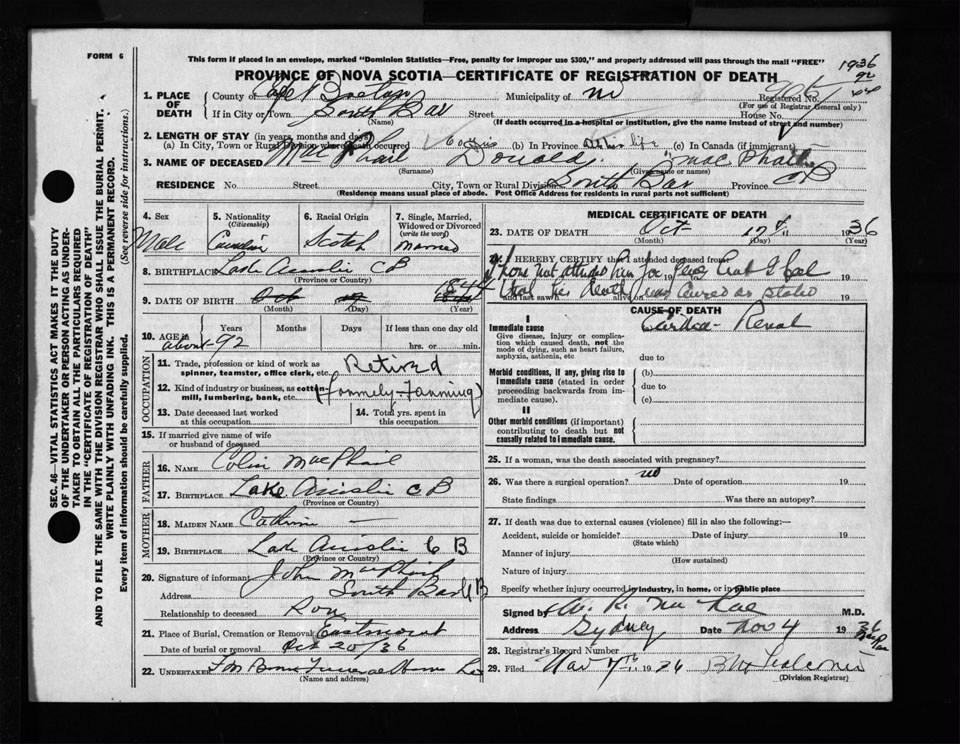 FORM 6
This form if placed in an envelope, marked "Dominion Statistics—Free, penalty for improper use $300," and properly addressed will pass through the mail "FREE"
1936
PROVINCE OF NOVA SCOTIA—CERTIFICATE OF REGISTRATION OF DEATH
1. PLACE OF DEATH
County of Cape Breton Municipality of Registered No.
(For use of Registrar General only)
If in City or Town South Bar Street House No.
(Name) (If death occurred in a hospital or institution, give the name instead of street and number)
2. LENGTH OF STAY (in years, months and days)
(a) In City, Town or Rural Division where death occurred (b) In Province all his life (c) In Canada (if immigrant)
3. NAME OF DECEASED MacPhail Donald MacPhail
(Surname) (Given name or names)
RESIDENCE No. Street City, Town or Rural Division South Bar Province CB
(Residence means usual place of abode. Post Office Address for residents in rural parts not sufficient)
4. Sex Male
5. Nationality (Citizenship) Canadian
6. Racial Origin Scotch
7. Single, Married, Widowed or Divorced (write the word) Married
8. BIRTHPLACE Lake Ainslie CB
(Province or Country)
9. DATE OF BIRTH Oct 1844
(Month) (Day) (Year)
10. AGE in Years Months Days If less than one day old
about 92 hrs. or min.
OCCUPATION
11. Trade, profession or kind of work as spinner, teamster, office clerk, etc. Retired
12. Kind of industry or business, as cotton-mill, lumbering, bank, etc. (Formely Farming)
13. Date deceased last worked at this occupation
14. Total yrs. spent in this occupation
15. If married give name of wife or husband of deceased
FATHER
16. NAME Colin MacPhail
17. BIRTHPLACE Lake Ainslie CB
(Province or Country)
MOTHER
18. MAIDEN NAME Catherine —
19. BIRTHPLACE Lake Ainslie C B
(Province or Country)
20. Signature of informant John MacPhail
Address South Bar C B
Relationship to deceased Son
21. Place of Burial, Cremation or Removal Eastmount
Date of burial or removal Oct 20/36
22. UNDERTAKER Funeral Home
(Name and address)
MEDICAL CERTIFICATE OF DEATH
23. DATE OF DEATH Oct 17th 1936
(Month) (Day) (Year)
24. I HEREBY CERTIFY that I attended deceased from
I have not attended him for years but I feel 19
and last saw alive on 19
that his death was caused as stated
CAUSE OF DEATH
I
Immediate cause
Give disease, injury or complication which caused death, not the mode of dying, such as heart failure, asphyxia, asthenia, etc
Cardio-Renal
due to
Morbid conditions, if any, giving rise to Immediate cause (stated in order proceeding backwards from immediate cause).
(b)
due to
(c)
II
Other morbid conditions (if important) contributing to death but not causally related to Immediate cause.
25. If a woman, was the death associated with pregnancy?
26. Was there a surgical operation? no Date of operation 19
State findings Was there an autopsy?
27. If death was due to external causes (violence) fill in also the following:—
Accident, suicide or homicide? Date of injury 19
(State which)
Manner of injury
(How sustained)
Nature of injury
Specify whether injury occurred in industry, in home, or in public place
Signed by M.D.
Address Sydney Date Nov 4 1936
28. Registrar's Record Number
29. Filed Nov 7th 1936
(Division Registrar)
SEC. 46—VITAL STATISTICS ACT MAKES IT THE DUTY
OF THE UNDERTAKER OR PERSON ACTING AS UNDER-
TAKER TO OBTAIN ALL THE PARTICULARS REQUIRED
IN THE "CERTIFICATE OF REGISTRATION OF DEATH"
AND TO FILE THE SAME WITH THE DIVISION REGISTRAR WHO SHALL ISSUE THE BURIAL PERMIT.
WRITE PLAINLY WITH UNFADING INK. THIS IS A PERMANENT RECORD.
Every item of information should be carefully supplied. (See reverse side for instructions.)